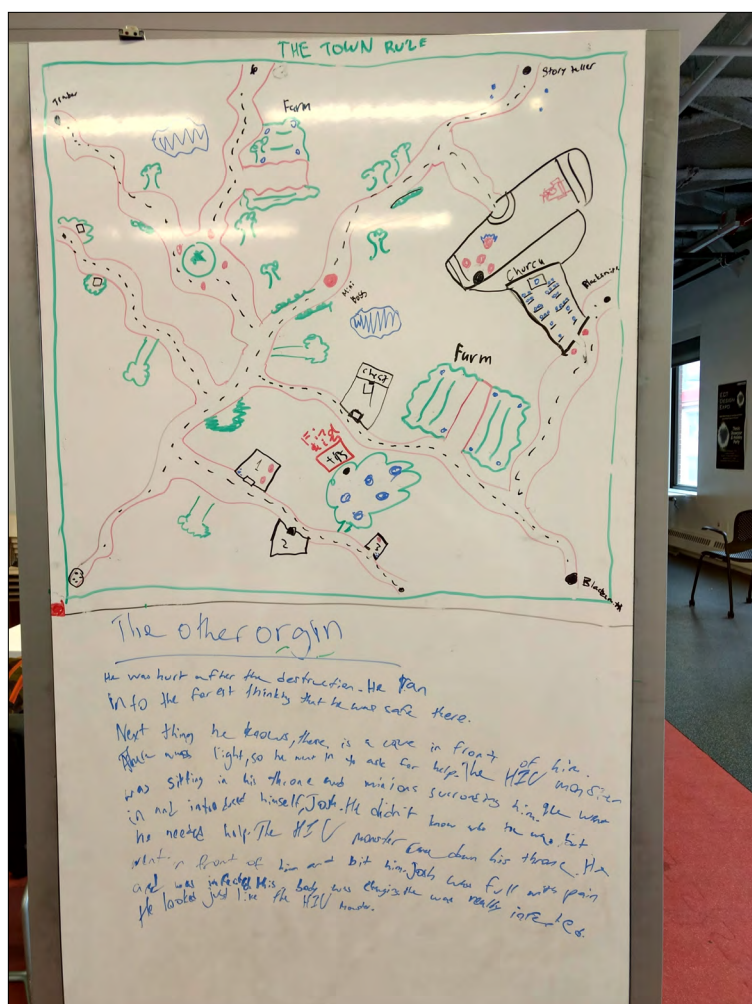 THE TOWN RULE
Story teller
Farm
Church
Mini
Boss
Farm
chest
4
tips
1
2
3
Blacksmith
The other orgin
He was hurt after the destruction. He ran
into the forest thinking that he was safe there.
Next thing he knows, there is a cave in front of him.
There was light, so he went in to ask for help. The HIV monster
was sitting in his throne and minions surrounding him. He went
in and introduced himself, Josh. He didn't know who he was, but
he needed help. The HIV monster came down his throne. He
went front of him and bit him. Josh was full with pain
and was infected. His body was changing. He was really infected.
He looked just like the HIV monster.